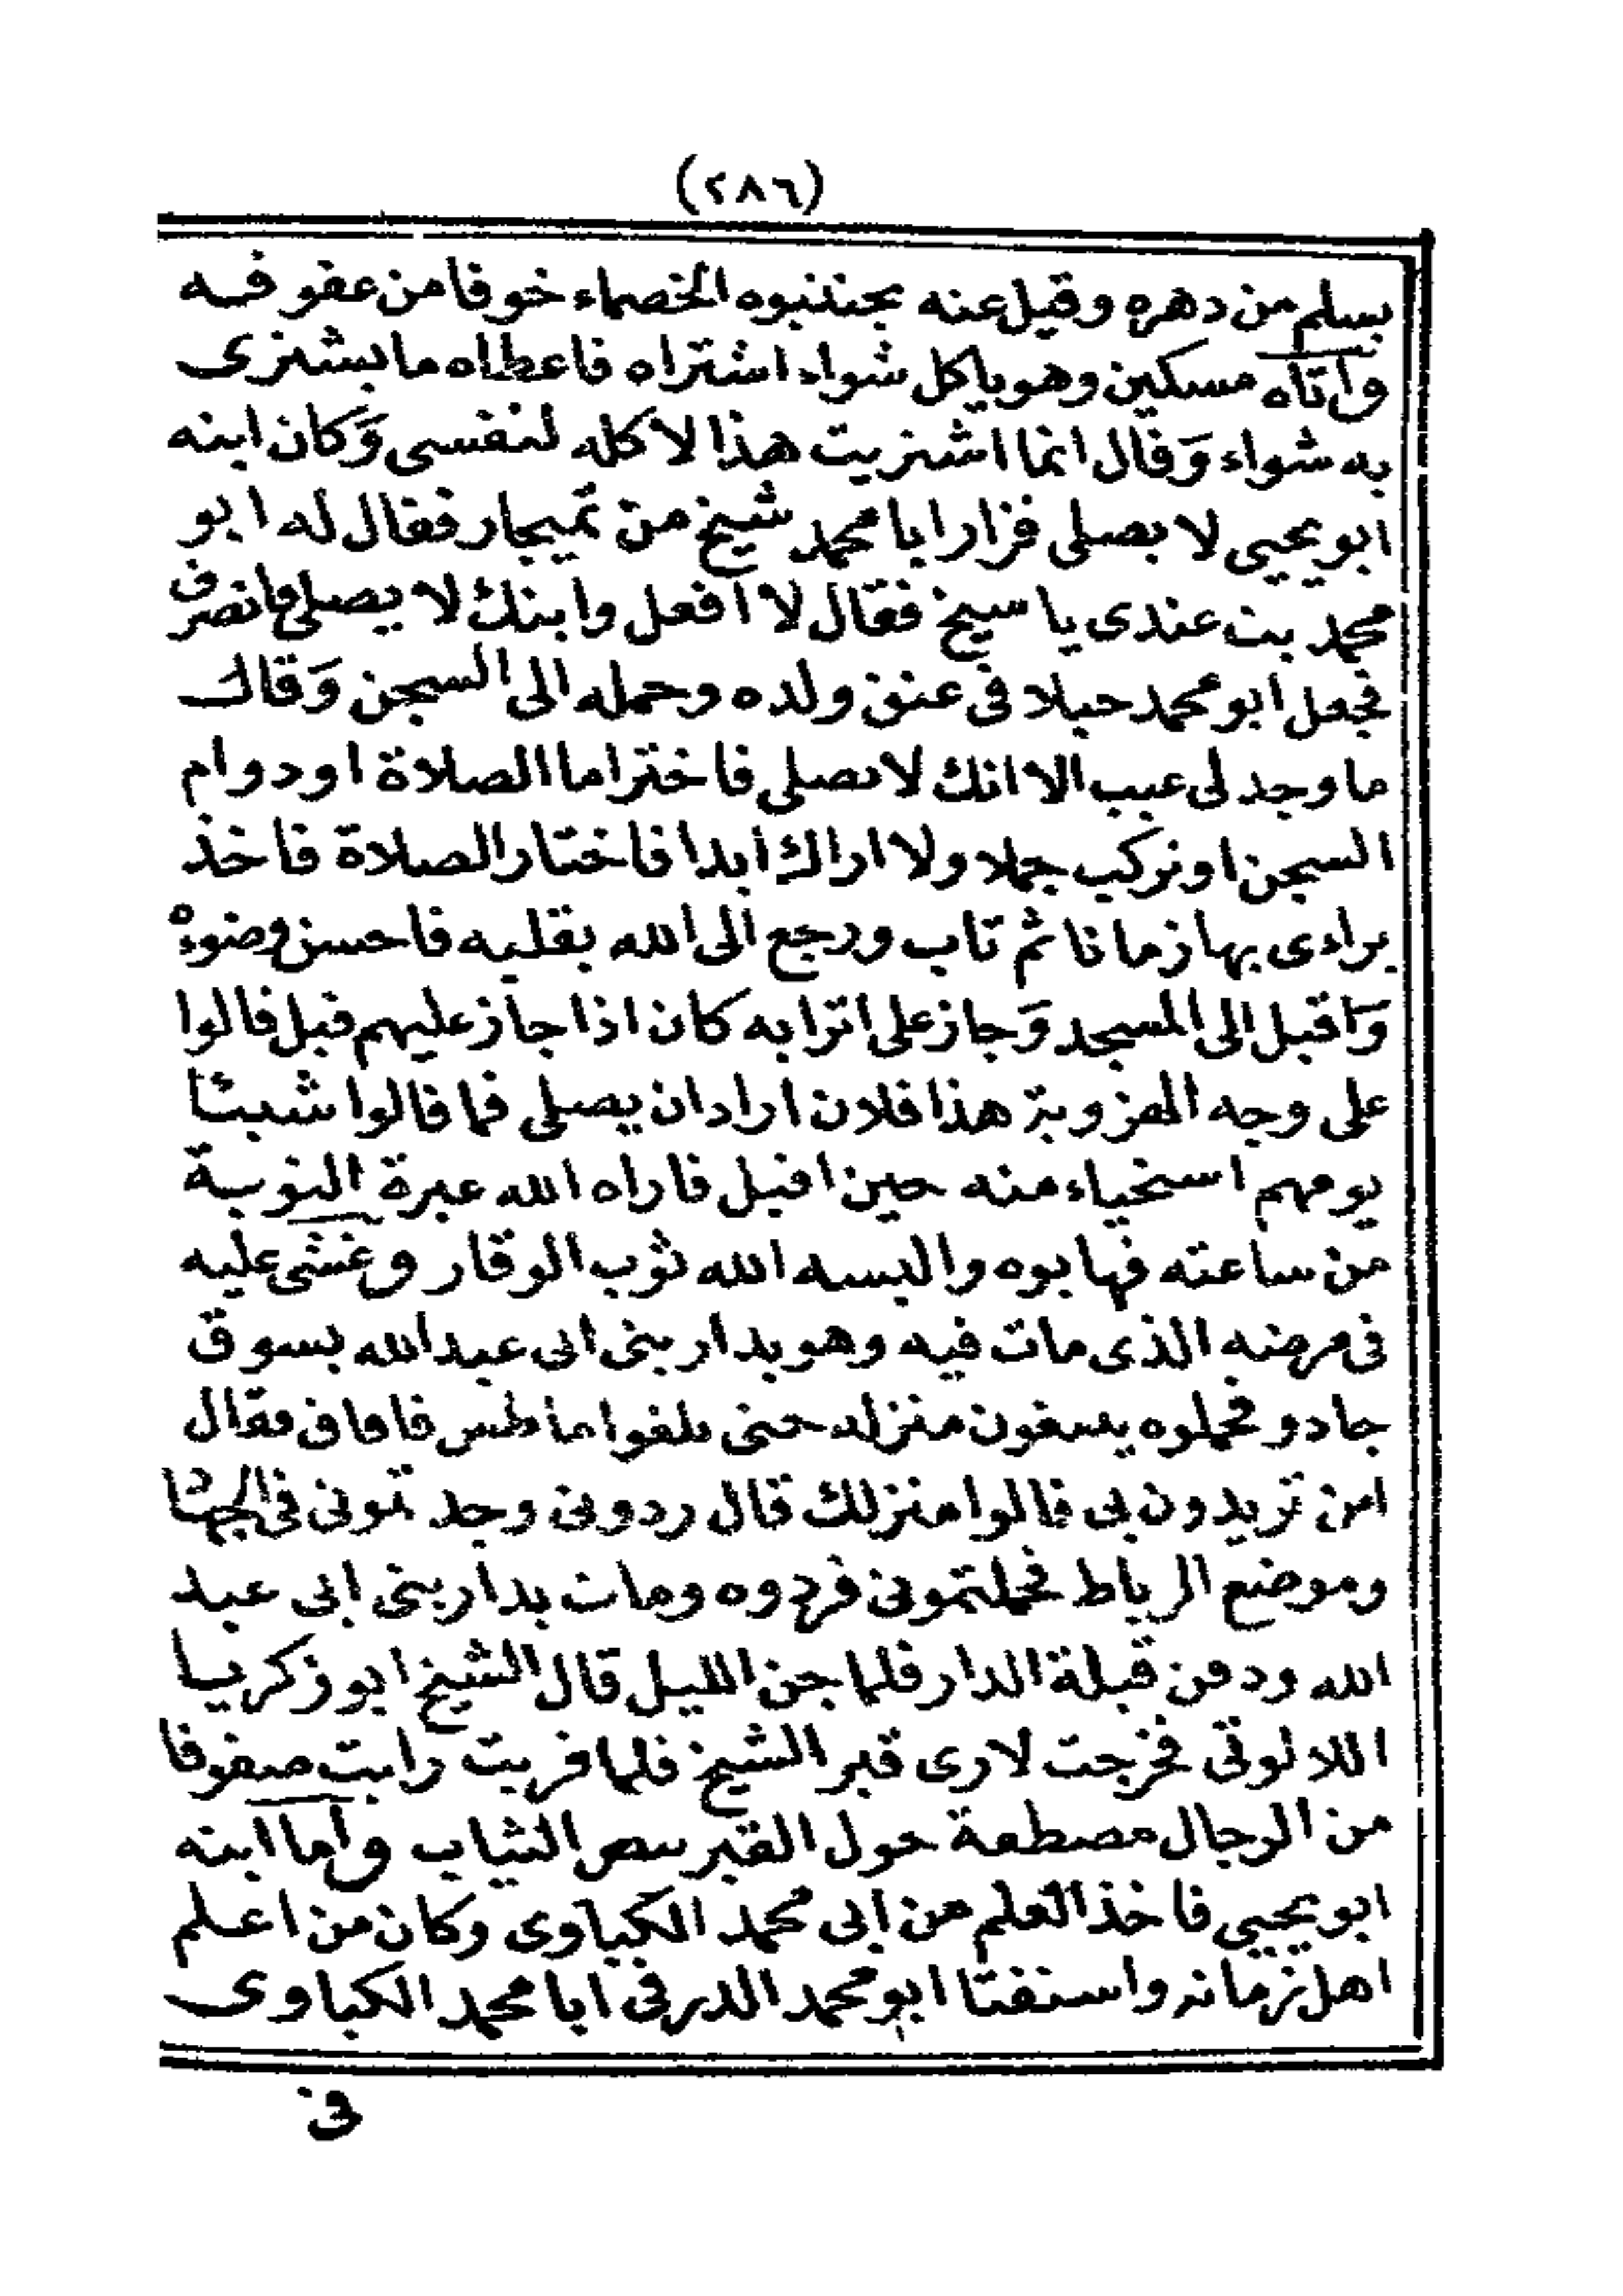 (٢٨٦)
يسلم من دهره وقيل عنه يجتنبوه الخصماء خوفا من عقوقه
واتاه مسكين وهو ياكل شواء اشتراه فاعطاه ما يشترى
به شواء وَقال انما اشتريت هذا لاكله لنفسى وَكان ابنه
ابو يحيى لا يصلى فزار ابا محمد شيخ من تميجار فقال له ابو
محمد بت عندى يا شيخ فقال لا افعل وابنك لا يصلى فانصرف
فجعل ابو محمد حبلا فى عنق ولده وحمله الى السجن وَقال
ما وجد لى عيب الا انك لا تصلى فاختر اما الصلاة او دوام
السجن او تركب جملا ولا اراك ابدا فاختار الصلاة فاخذ
يراءى بها زمانا ثم تاب ورجع الى الله بقلبه فاحسن وضوءه
وَاقبل الى المسجد وَجاز على اترابه كان اذا جاز عليهم قبل قالوا
على وجه الهزوبة هذا فلان اراد ان يصلى فما قالوا شيئا
يومهم استحياء منه حين اقبل فاراه الله عبرة التوبة
من ساعته فهابوه والبسه الله ثوب الوقار وغشى عليه
فى مرضه الذى مات فيه وهو بدار بنى ابى عبدالله بسوق
جادو فحملوه يبغون منزله حتى بلغوا ماطس فافاق فقال
اين تريدون بى قالوا منزلك قال ردونى وجدتمونى فى الجهاد
وموضع الرباط فحملتمونى فردوه ومات بدار بنى ابى عبد
الله ودفن قبلة الدار فلما جن الليل قال الشيخ ابو زكريا
اللالوتى فخرجت لارى قبر الشيخ فلما قربت رايت صفوفا
من الرجال مصطفة حول القبر بيض الثياب واما ابنه
ابو يحيى فاخذ العلم عن ابى محمد الكباوى وكان من اعلم
اهل زمانه واستفتا ابو محمد الدرفى ابا محمد الكباوى
فى